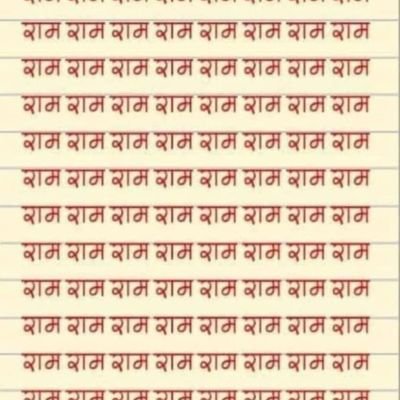 राम राम राम राम राम राम राम राम
राम राम राम राम राम राम राम राम
राम राम राम राम राम राम राम राम
राम राम राम राम राम राम राम राम
राम राम राम राम राम राम राम राम
राम राम राम राम राम राम राम राम
राम राम राम राम राम राम राम राम
राम राम राम राम राम राम राम राम
राम राम राम राम राम राम राम राम
राम राम राम राम राम राम राम राम
राम राम राम राम राम राम राम राम